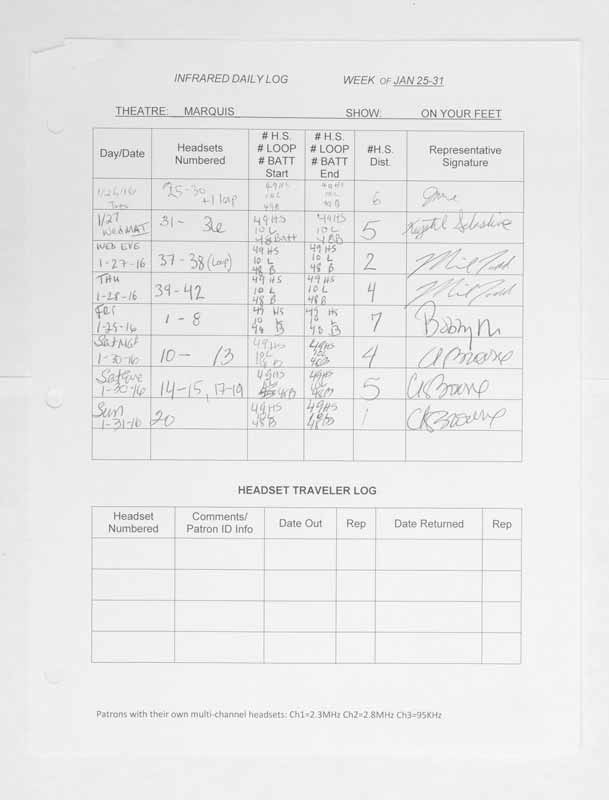 INFRARED DAILY LOG WEEK OF JAN 25-31
THEATRE: MARQUIS SHOW: ON YOUR FEET
Day/Date
Headsets
Numbered
# H.S.
# LOOP
# BATT
Start
# H.S.
# LOOP
# BATT
End
#H.S.
Dist.
Representative
Signature
1/26/16
Tues
25-30
+1 loop
49HS
10L
48B
49HS
10L
6
1/27
Wed MAT
31- 36
49HS
10 L
48 Batt
49HS
10 L
48B
5
WED EVE
1-27-16
37-38 (Loop)
49 HS
10 L
48 B
49 HS
10 L
48 B
2
THU
1-28-16
39-42
49 HS
10 L
48 B
49 HS
10 L
48B
4
Fri
1-25-16
1 - 8
49 HS
10 L
48 B
49 HS
10 L
48 B
7
Bobby M
Sat Mat
1-30-16
10- 13
49HS
10L
48 B
49HS
10L
48B
4
CKBrowne
Sat Eve
1-30-16
14-15, 17-19
49HS
48B
49HS
10L
48B
5
CKBrowne
Sun
1-31-16
20
49HS
10L
48B
49HS
10L
48B
1
CKBrowne
HEADSET TRAVELER LOG
Headset
Numbered
Comments/
Patron ID Info
Date Out
Rep
Date Returned
Rep
Patrons with their own multi-channel headsets: Ch1=2.3MHz Ch2=2.8MHz Ch3=95KHz